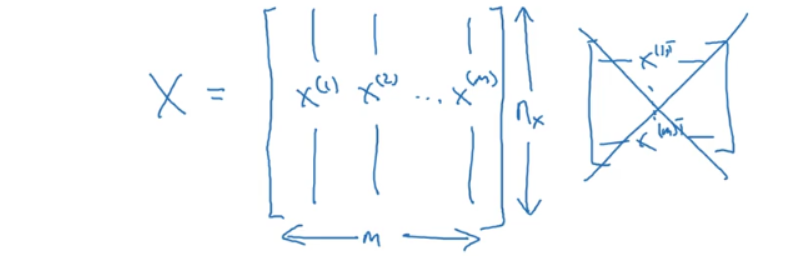 X = [ x^(1) x^(2) ... x^(m) ] n_x
m
x^(1)T
x^(m)T